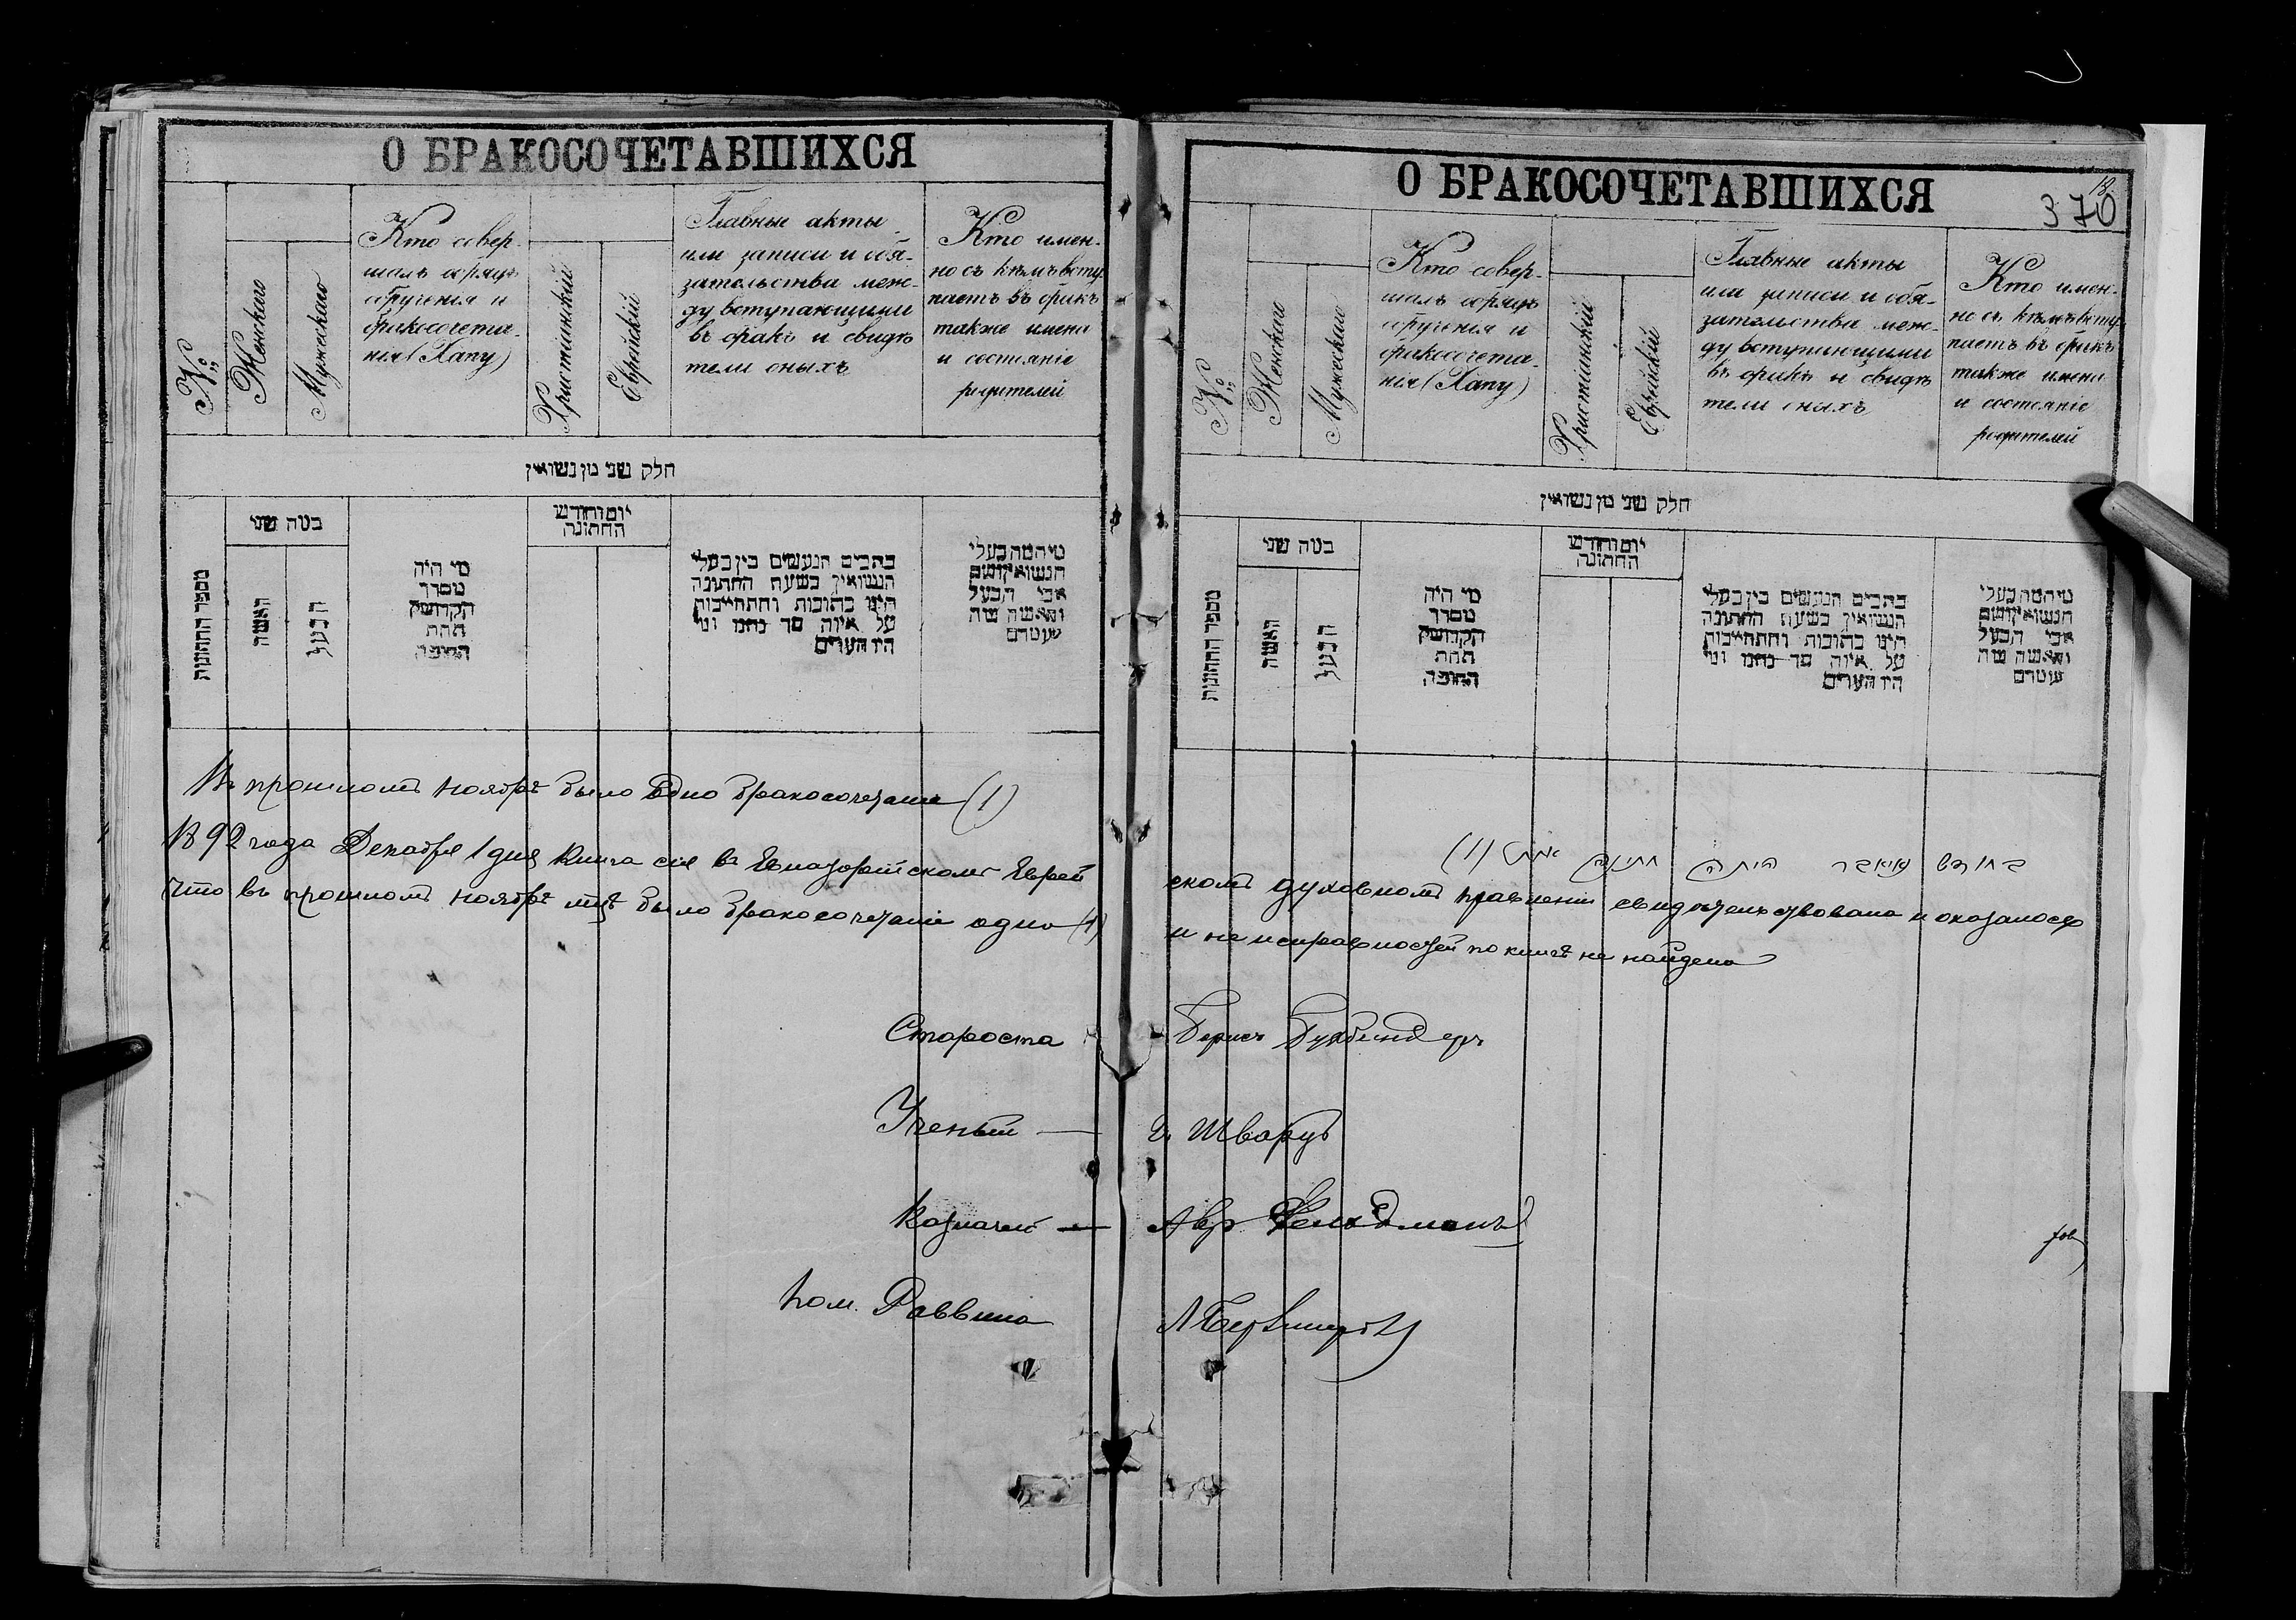 О БРАКОСОЧЕТАВШИХСЯ
№
Женскаго
Мужескаго
Кто совер-
шалъ обрядъ
обрученія и
бракосочета-
нія (Хапу)
Христіанскій
Еврейскій
Главные акты
или записи и обя-
зательства меж-
ду вступающими
въ бракъ и свидѣ
тели оныхъ
Кто имен-
но съ кѣмъ всту-
паетъ въ бракъ
также имена
и состояніе
родителей
חלק שני מן נשואין
מספר החתונות
במה שני
האשה
הבעל
מי היה
מסדר
הקדושין
תחת
החופה
יום וחודש
החתונה
כתבים הנעשים בין בעלי
הנשואין בשעת החתונה
היינו כתובות והתחייבות
על איזה סך נתנו ומי
היו העדים
מי המה בעלי
הנשואין ושם
אבי הבעל
והאשה
Въ прошломъ ноябрѣ было одно бракосочетаніе (1)
1892 года Декабря 1 дня книга сія въ Евпаторійскомъ Еврей
что въ прошломъ ноябрѣ мцѣ было бракосочетаніе одно (1)
Староста
Ученый —
Казначей —
Пом. Раввина
О БРАКОСОЧЕТАВШИХСЯ
18
370
№
Женскаго
Мужескаго
Кто совер-
шалъ обрядъ
обрученія и
бракосочета-
нія (Хапу)
Христіанскій
Еврейскій
Главные акты
или записи и обя-
зательства меж-
ду вступающими
въ бракъ и свидѣ
тели оныхъ
Кто имен-
но съ кѣмъ всту-
паетъ въ бракъ
также имена
и состояніе
родителей
חלק שני מן נשואין
מספר החתונות
במה שני
האשה
הבעל
מי היה
מסדר
הקדושין
תחת
החופה
יום וחודש
החתונה
כתבים הנעשים בין בעלי
הנשואין בשעת החתונה
היינו כתובות והתחייבות
על איזה סך נתנו ומי
היו העדים
מי המה בעלי
הנשואין ושם
אבי הבעל
והאשה
בחודש נאיאבר היתה חתונה אחת (1)
скомъ духовномъ правленіи свидѣтельствована и оказалось
и неисправностей по книгѣ не найдено
Борисъ Бухбиндеръ
Шварцъ
Авр Фельдманъ